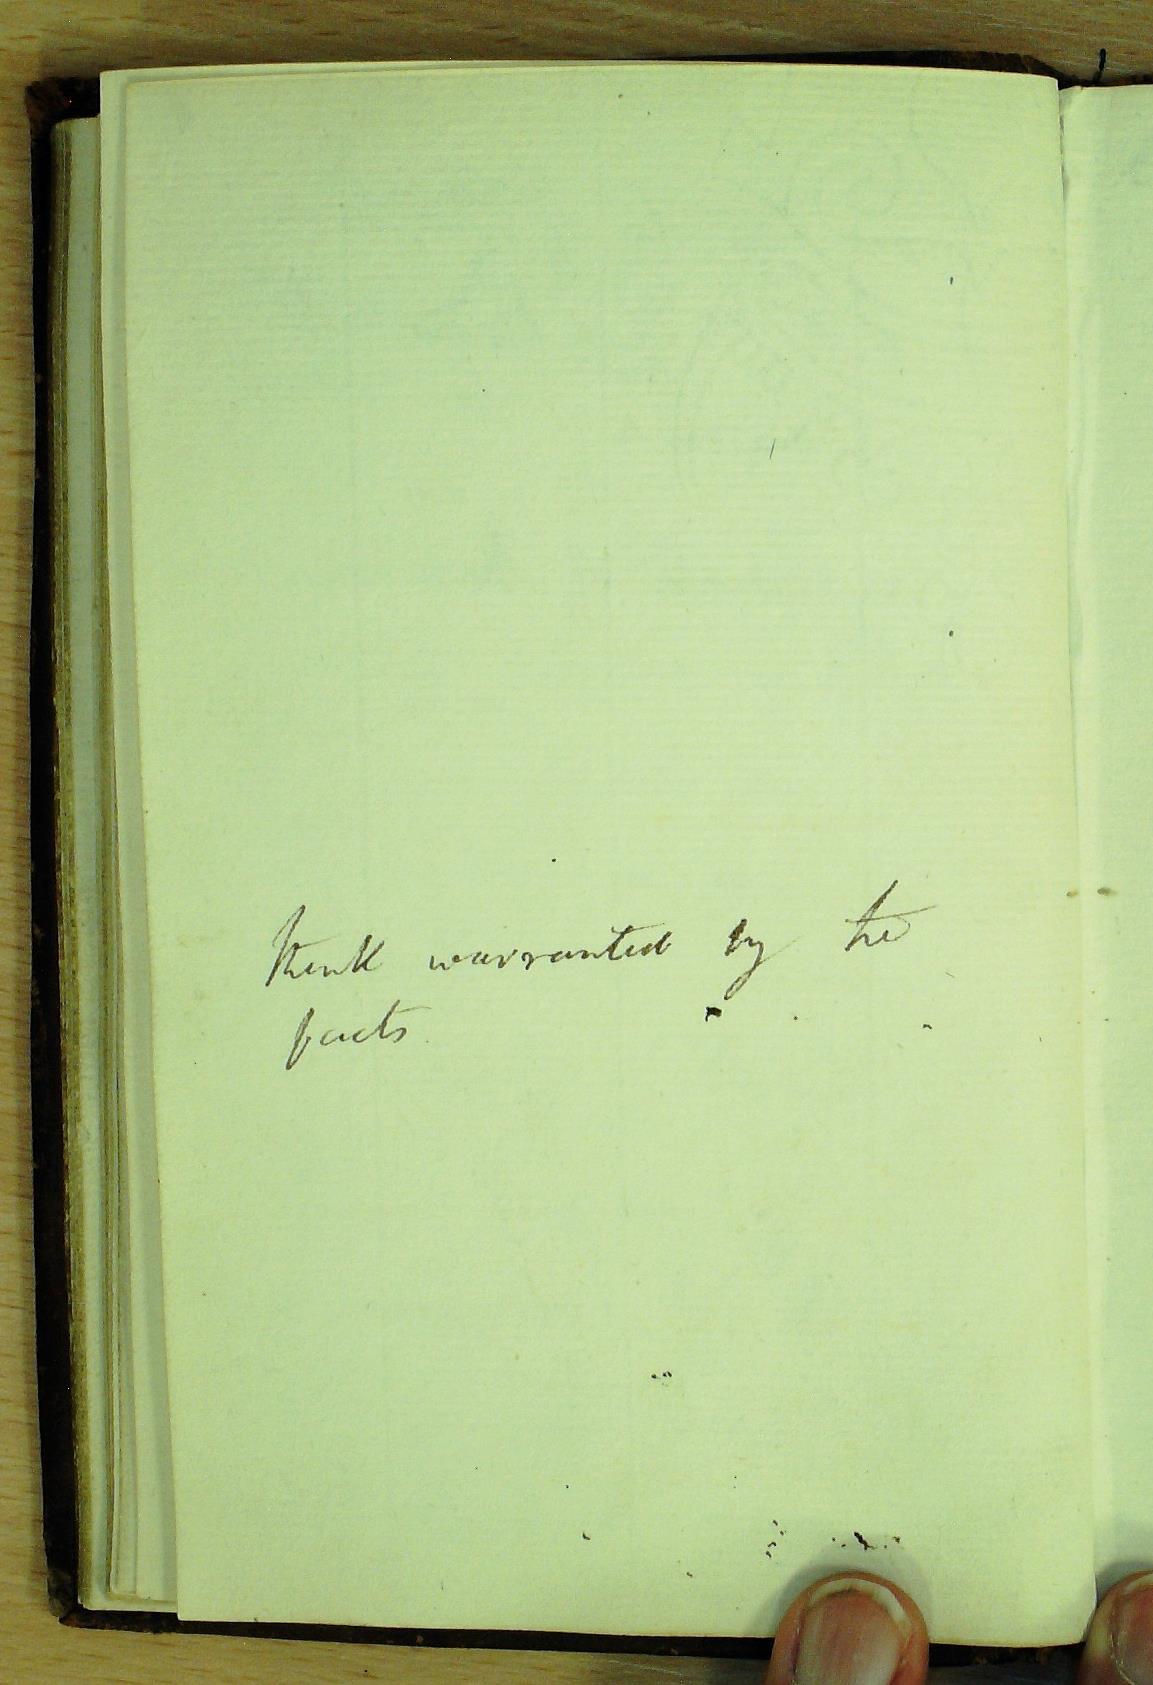 think warranted by the
facts